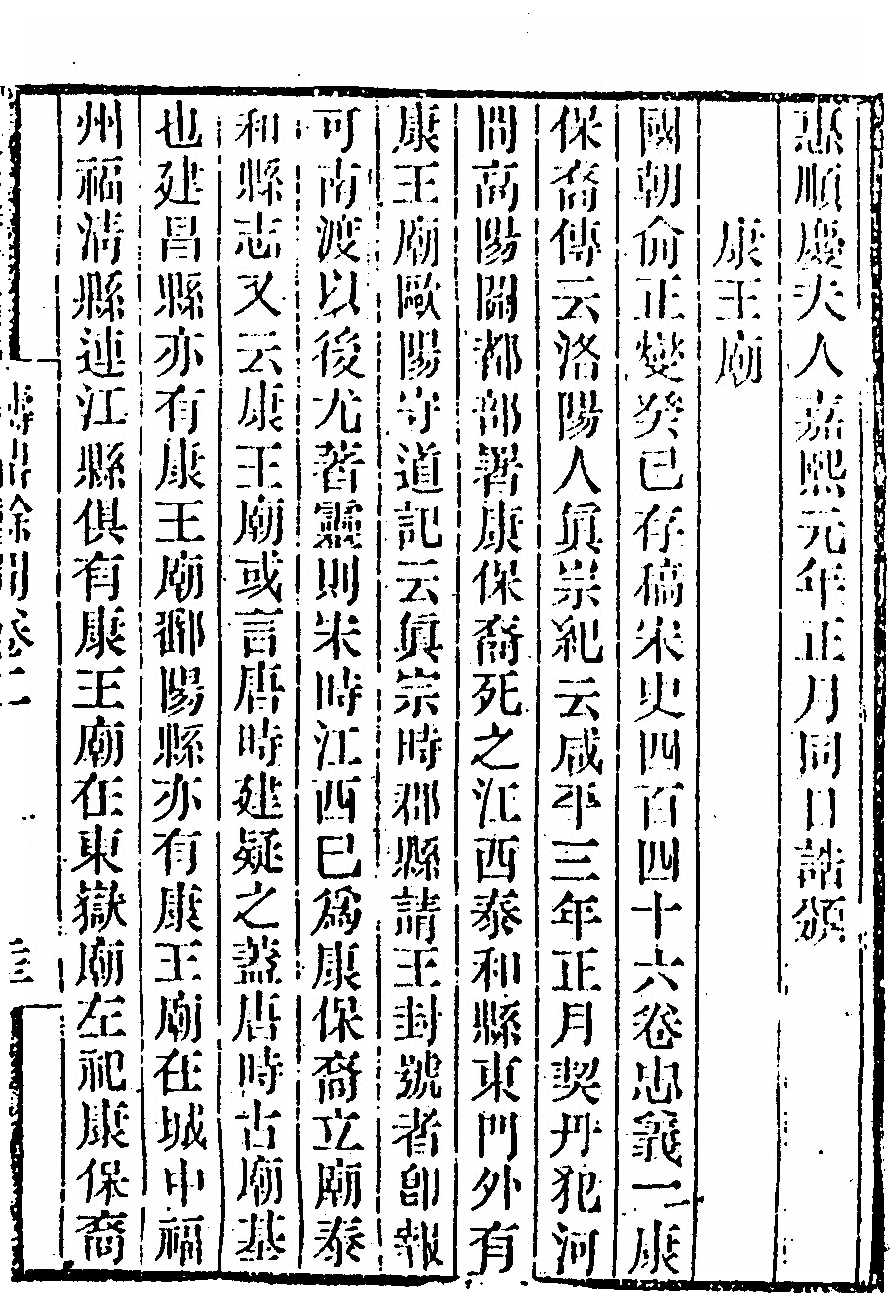 惠順慶夫人嘉熙元年正月同日誥頒
康王廟
國朝俞正燮癸巳存稿宋史四百四十六卷忠義一康
保裔傳云洛陽人眞宗紀云咸平三年正月契丹犯河
間高陽關都部署康保裔死之江西泰和縣東門外有
康王廟歐陽守道記云眞宗時郡縣請王封號者卽報
可南渡以後尤著靈則宋時江西已爲康保裔立廟泰
和縣志又云康王廟或言唐時建疑之蓋唐時古廟基
也建昌縣亦有康王廟鄱陽縣亦有康王廟在城中福
州福淸縣連江縣俱有康王廟在東嶽廟左祀康保裔
餘聞卷二
三